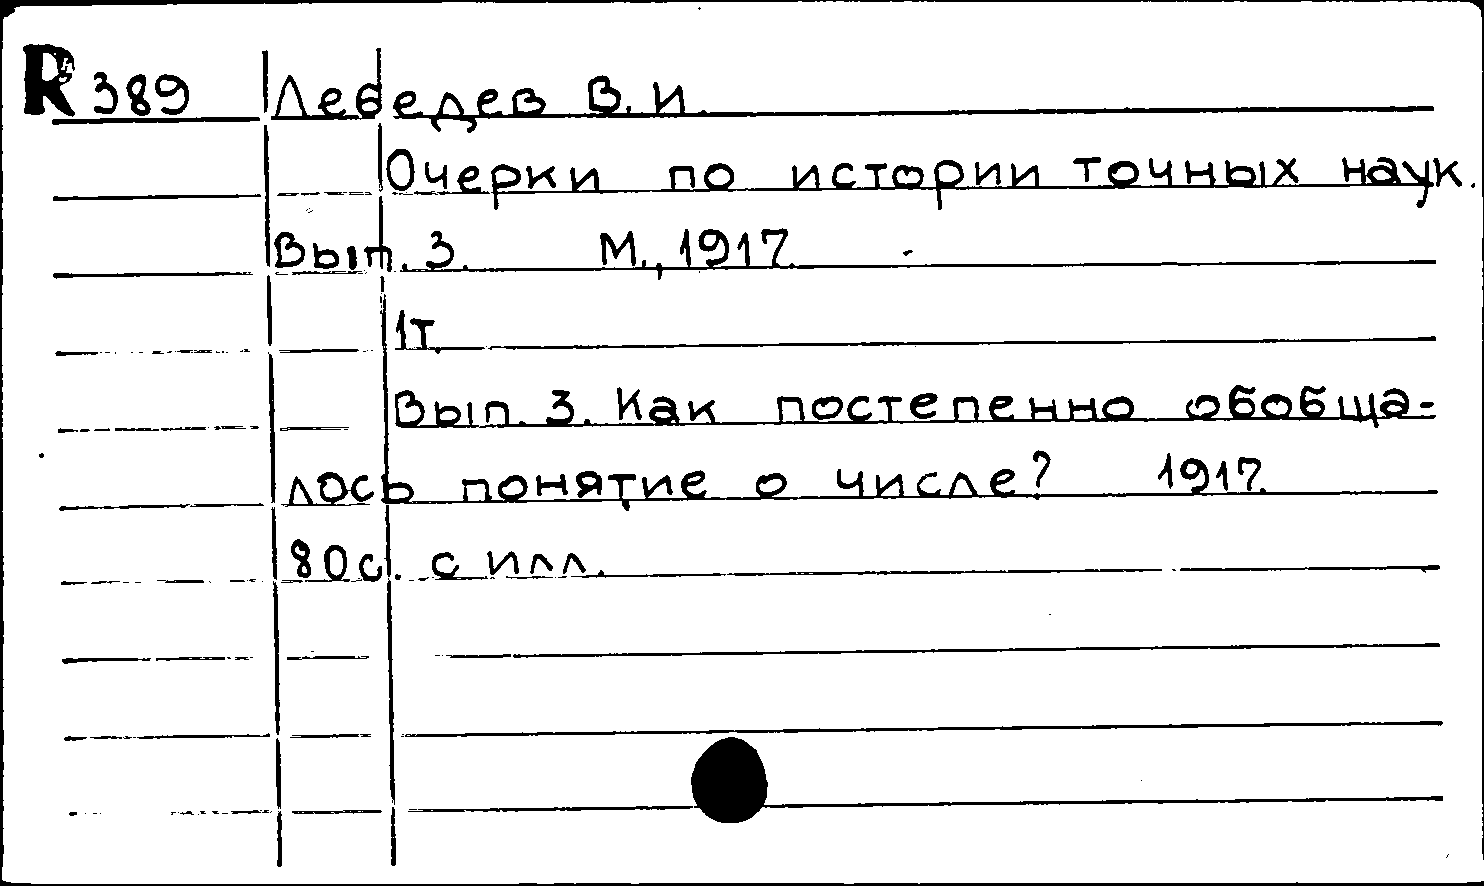 R 389 Лебедев В. И.
Очерки по истории точных наук.
Вып. 3. М., 1917.
1т.
Вып. 3. Как постепенно обобща-
лось понятие о числе? 1917.
80с. с илл.